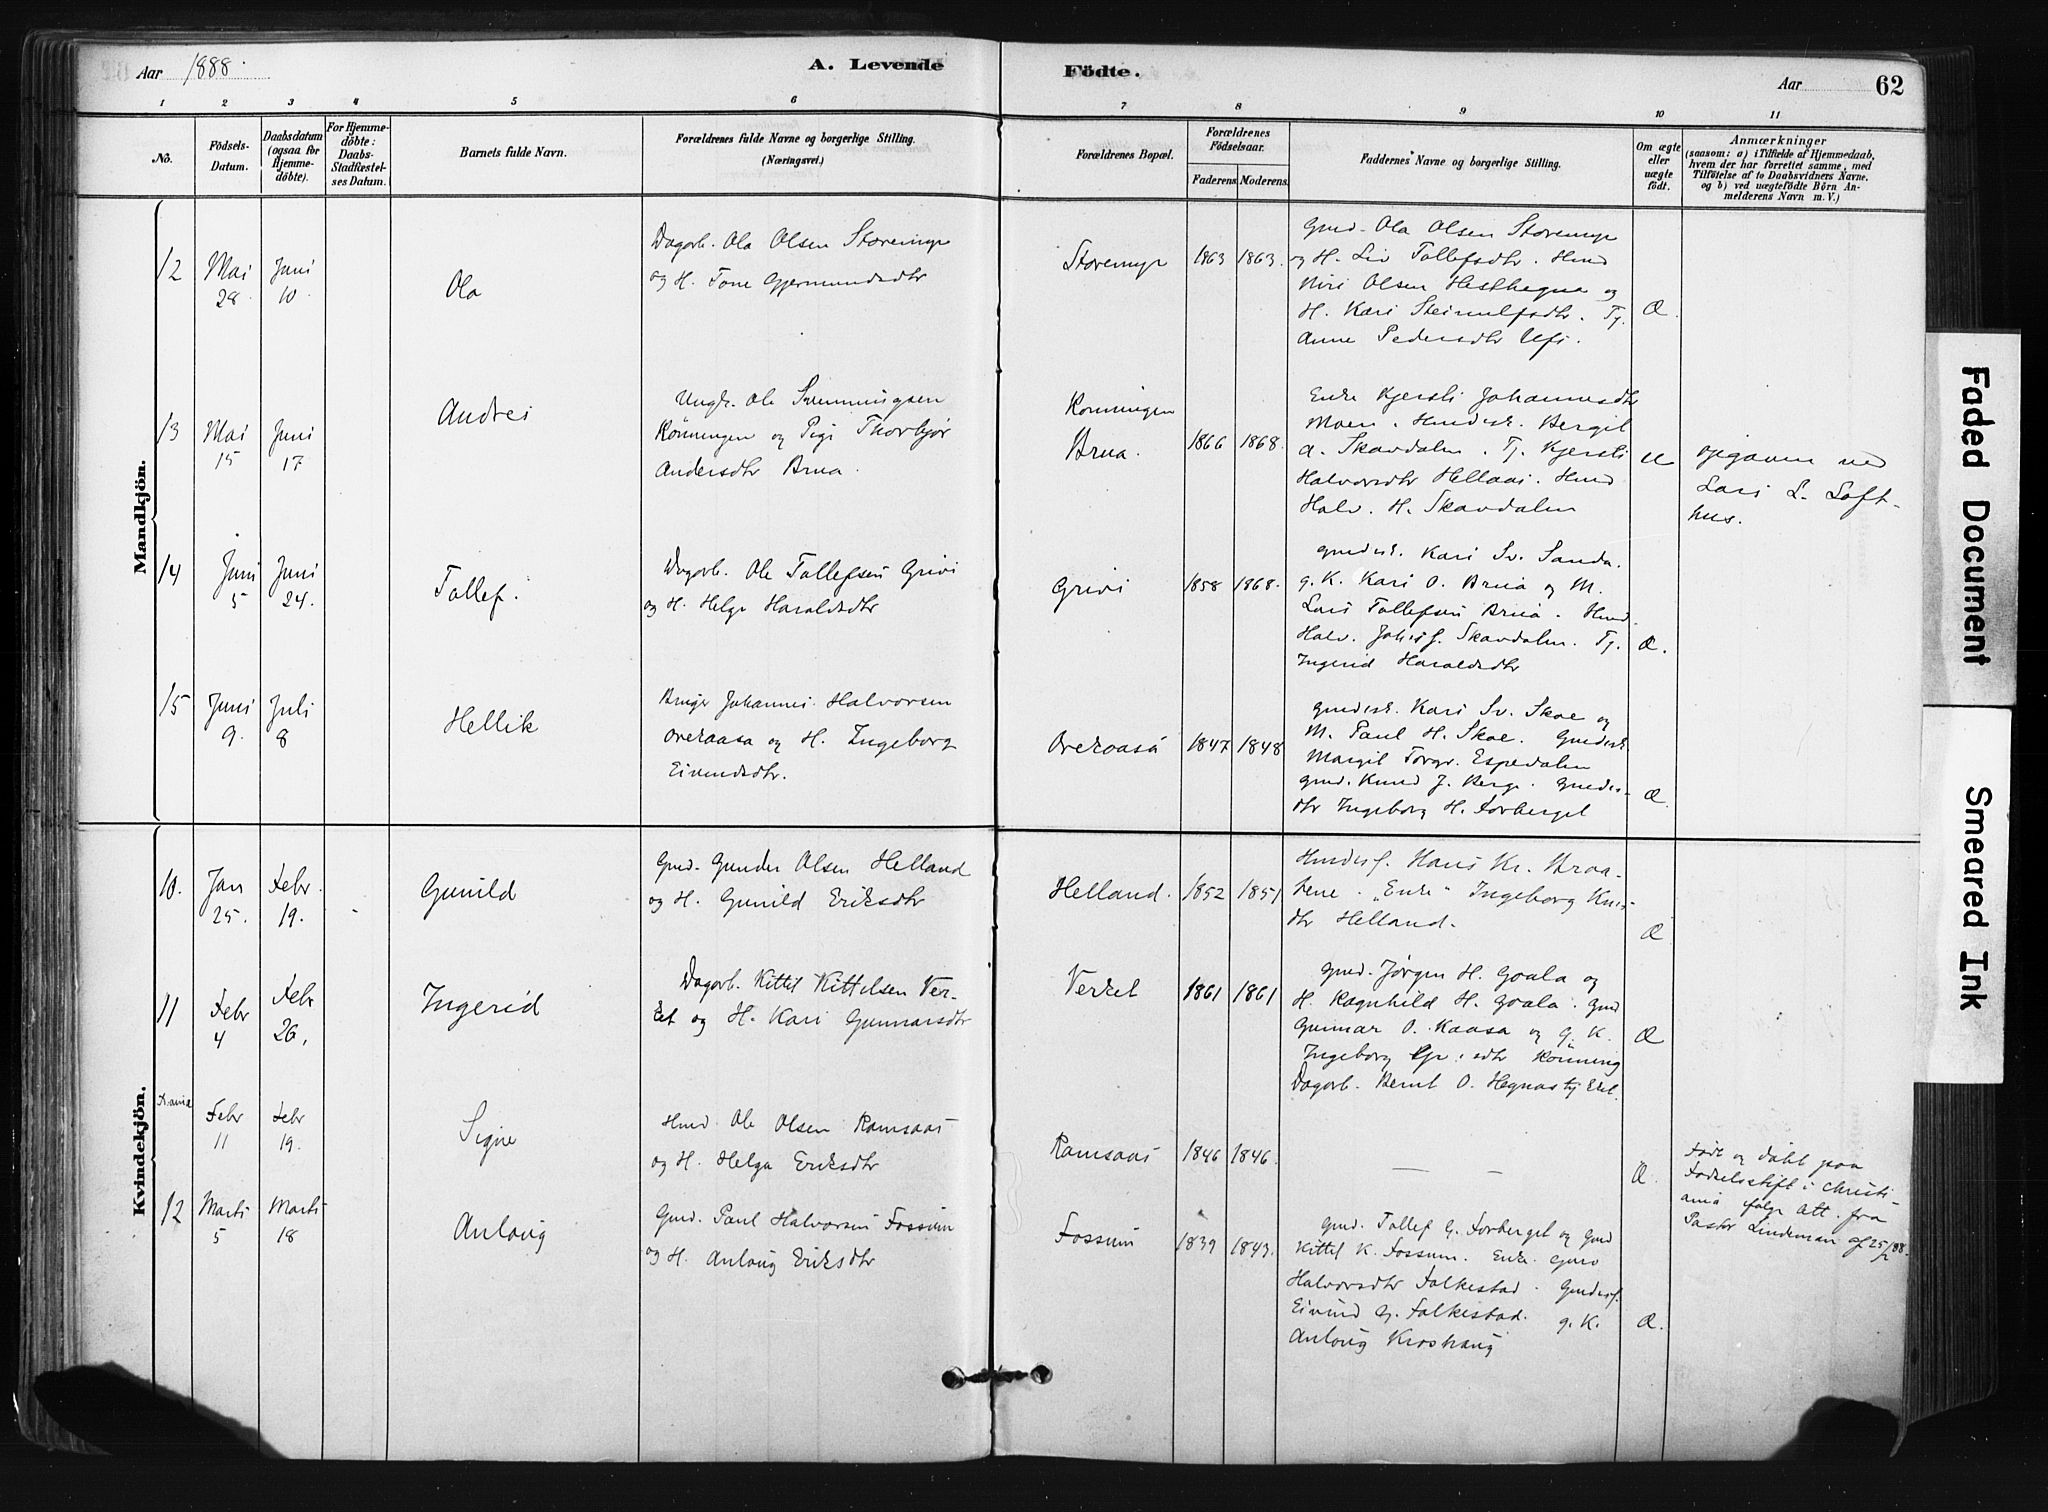 Aar 1888.
A. Levende Födte.
Aar 62
1 2 3 4 5 6 7 8 9 10 11
No.
Födsels-Datum.
Daabsdatum (ogsaa for Hjemme-döbte).
For Hjemme-döbte: Daabs-Stadfæstel-ses Datum.
Barnets fulde Navn.
Forældrenes fulde Navne og borgerlige Stilling.
(Næringsvei.)
Forældrenes Bopæl.
Forældrenes Födselsaar.
Faderens. Moderens.
Faddernes Navne og borgerlige Stilling.
Om ægte eller uægte födt.
Anmærkninger
(saasom: a) i Tilfælde af Hjemmedaab,
hvem der har forrettet samme, med
Tilföielse af to Daabsvidners Navne.
og b) ved uægtefödte Börn An-
melderens Navn m. V.)
Mandkjön.
12 Mai 28 Juni 10. Ola
Dagarb. Ola Olsen Storemyr
og H. Tone Gjermundsdtr
Storemyr 1863 1863.
Gmd. Ola Olsen Storemyr
og H. Liv Tollefsdtr. Hmd
Niri Olsen Hesthagna og
H. Kari Steinulfsdtr. Tj.
Anne Pedersdtr Ufs.
Æ.
13 Mai 15 Juni 17 Andrei
Ungk. Ole Svenningsen
Rönningen og Pige Thorbjør
Andersdtr Brua.
Ronningen
Brua. 1866 1868.
Enke Kjersti Johannesdtr
Moen. Hmdsk. Bergit
A. Skavdalen. Tj. Kjersti
Halvorsdtr Hellaas. Hmd
Halv. H. Skavdalen
U
opgaven ved
Lars L. Loft-
hus.
14 Juni 5 Juni 24. Tollef.
Dagarb. Ole Tollefsen Grivi
og H. Helge Haraldsdtr
Grivi 1858 1868.
Gmdsk. Kari Sv. Sanda.
g. K. Kari O. Brua og M.
Lars Tollefsen Brua. Hmd.
Halv. Johs f. Skavdalen. Tj.
Ingerid Haraldsdtr
Æ.
15 Juni 9. Juli 8 Hellik
Bruger Johannes Halvorsen
Overaasa og H. Ingeborg
Eivindsdtr.
Overaasa 1847 1848
Gmdsk. Kari Sv. Skoe og
M. Paul H. Skoe. Gmdsk.
Margit Torgr. Espedalen
Gmd. Knud J. Berge. Gmds-
dtr Ingeborg H. Forberget
Æ.
Kvindekjön.
10. Jan 25. Febr. 19. Gunild
Gmd. Gunder Olsen Helland
og H. Gunild Eriksdtr
Helland. 1852 1851
Hmdsf. Hans Kr. Braa-
tene. "Enke" Ingeborg Knus
dtr Helland.
Æ
11 Febr 4 Febr 26. Ingerid
Dagarb. Kittil Kittelsen Ver-
ket og H. Kari Gunnarsdtr
Verket 1861 1861
Gmd. Jørgen H. Goala og
H. Ragnhild H. Goala. Gmd
Gunnar O. Kaasa og g. K.
Ingeborg Gr.sdtr Rönning
Dagarb. Bernt O. Hegnastykket.
Æ
Febr 11 Febr 19. Signe
Hmd Ole Olsen Ramsaas
og H. Helga Eriksdtr
Ramsaas 1846 1846.
Æ.
Født og døbt paa
Fødselsstift i Christi-
ania følge Att. fra
Pastor Lindeman af 25/2 88.
12 Marts 5 Marts 18 Anlaug
Gmd. Paul Halvorsen Fossum
og H. Anlaug Eriksdtr
Fossum 1839 1843.
Gmd. Tollef G. Forberget og Gmd
Kittel K. Fossum. Enke Guro
Halvorsdtr Falkestad. Gmdsf.
Eivind G. Falkestad. g. K.
Anlaug Kroshaug
Æ.
Faded Document
Smeared Ink